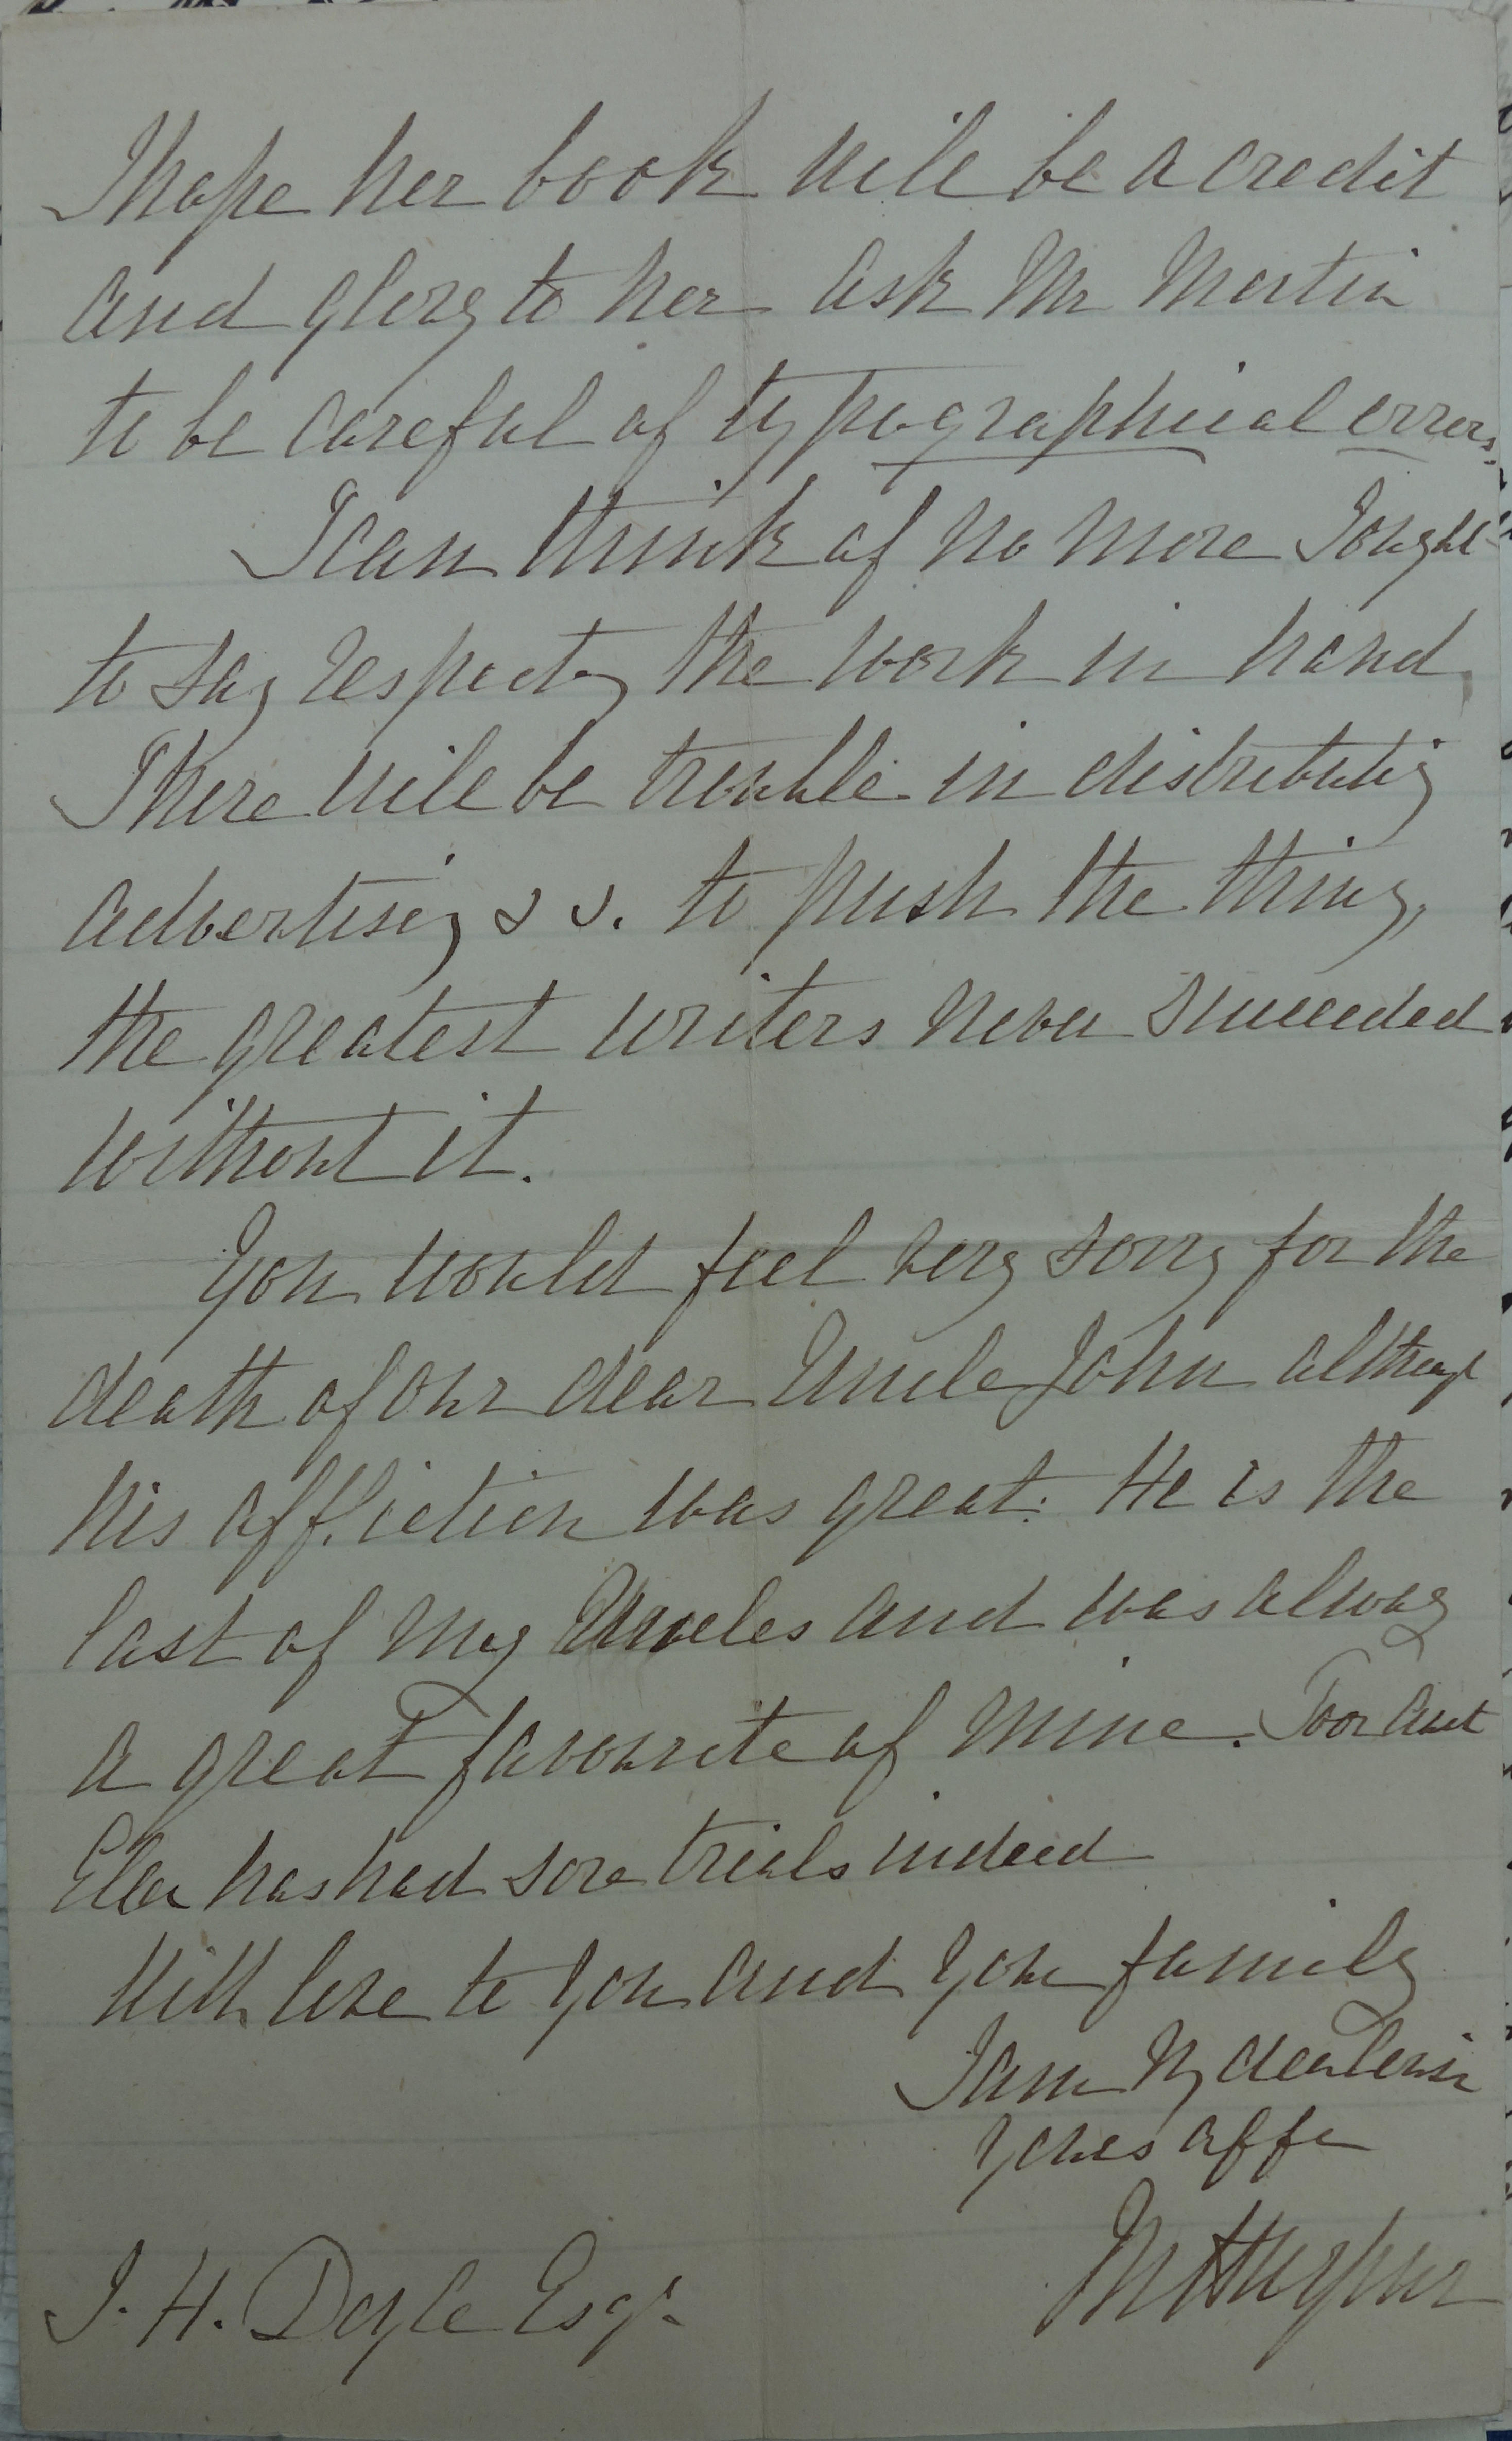 I hope her book will be a credit
and glory to her ask Mr Martin
to be careful of typographical errors.
I can think of no more I ought
to say respecting the work in hand
There will be trouble in distributing
advertising &c. to push the thing,
the greatest writers never succeeded
without it.
You would feel very sorry for the
death of our dear Uncle John although
his affliction was great. He is the
last of my Uncles and was always
a great favourite of mine. Poor Aunt
Ellen has had sore trials indeed
With love to you and your family
I am My dear
Yours affe
J. H. Doyle Esqr.